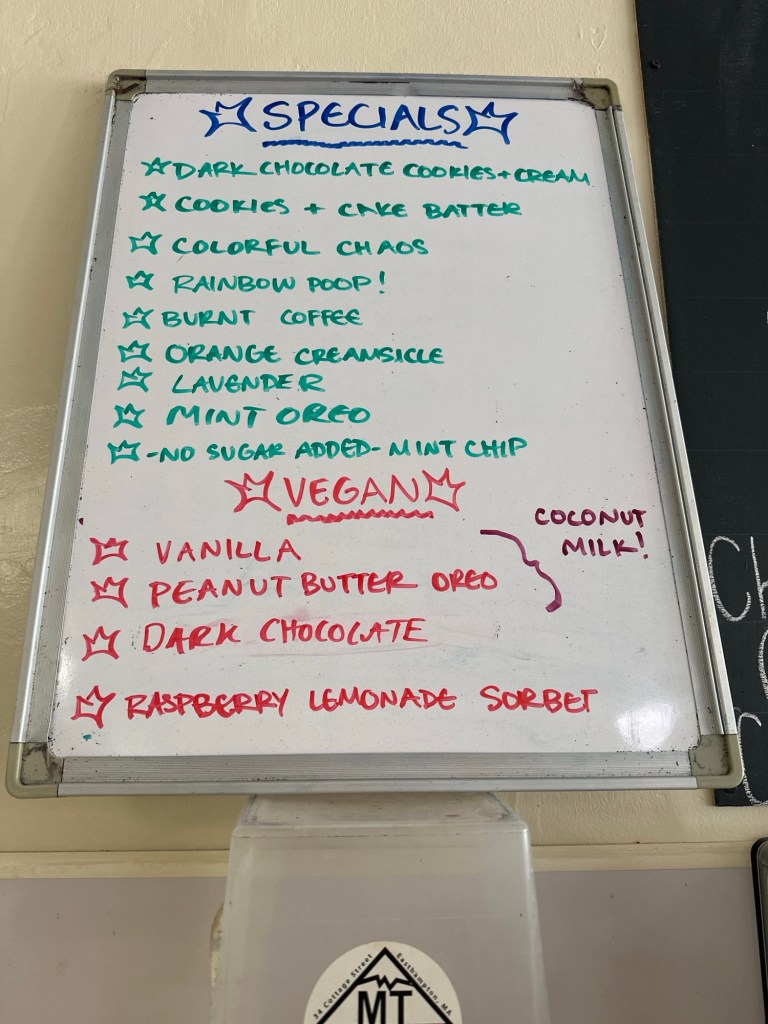 SPECIALS
DARK CHOCOLATE COOKIES + CREAM
COOKIES + CAKE BATTER
COLORFUL CHAOS
RAINBOW POOP!
BURNT COFFEE
ORANGE CREAMSICLE
LAVENDER
MINT OREO
-NO SUGAR ADDED- MINT CHIP
VEGAN
VANILLA
PEANUT BUTTER OREO
COCONUT
MILK!
DARK CHOCOLATE
RASPBERRY LEMONADE SORBET
Ch
34 Cottage Street Easthampton, MA
MT